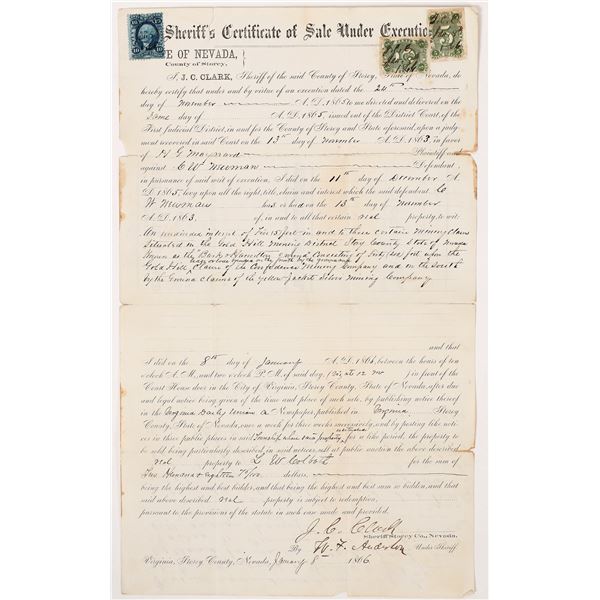 Sheriff's Certificate of Sale Under Execution
E OF NEVADA,
County of Storey,
I, J. C. CLARK, Sheriff of the said County of Storey, State of Nevada, do
hereby certify that under and by virtue of an execution dated the 24th
day of November A. D. 1865 to me directed and delivered on the
Same day of A. D. 1865, issued out of the District Court, of the
First Judicial District, in and for the County of Storey and State aforesaid, upon a judg-
ment recovered in said Court on the 13th day of November A. D. 1863, in favor
of H G Maynard Plaintiff and
against C W Newman Defendant,
in pursuance of said writ of execution, I did on the 11th day of December A.
D. 1865, levy upon all the right, title, claim and interest which the said defendant C
W Newman has or had on the 13th day of November
A. D. 1863 of, in and to all that certain real property, to wit:
An undivided interest of Ten 15 feet in and to those certain Mining Claim
Situated in the Gold Hill Mining District Story County State of Nevada
known as the Consisting of Sixty (60) feet upon the
Gold Hill on the North by the
Claim of the Confidence Mining Company and on the South
by the Claims of the Yellow Jacket Silver Mining Company
and that
I did on the 8th day of January A. D. 1866, between the hours of ten
o'clock A. M., and two o'clock P. M., of said day, in front of the
Court House door in the City of Virginia, Storey County, State of Nevada, after due
and legal notice being given of the time and place of such sale, by publishing notice thereof
in the Virginia Daily Union a Newspaper, published in Virginia Storey
County, State of Nevada, once a week for three weeks successively, and by posting like noti-
ces in three public places in said Township where said property situated for a like period, the property to
be sold being particularly described, in said notices, sell at public auction the above described
real property to W Colbert for the sum of
Two Hundred & eighteen dollars,
being the highest and best bidder, and that being the highest and best sum so bidden, and that
said above described real property is subject to redemption,
pursuant to the provisions of the statute in such case made and provided.
J. C. Clark
Sheriff Storey Co., Nevada.
By W. F. Anderson Under Sheriff.
Virginia, Storey County, Nevada, January 8th 1866